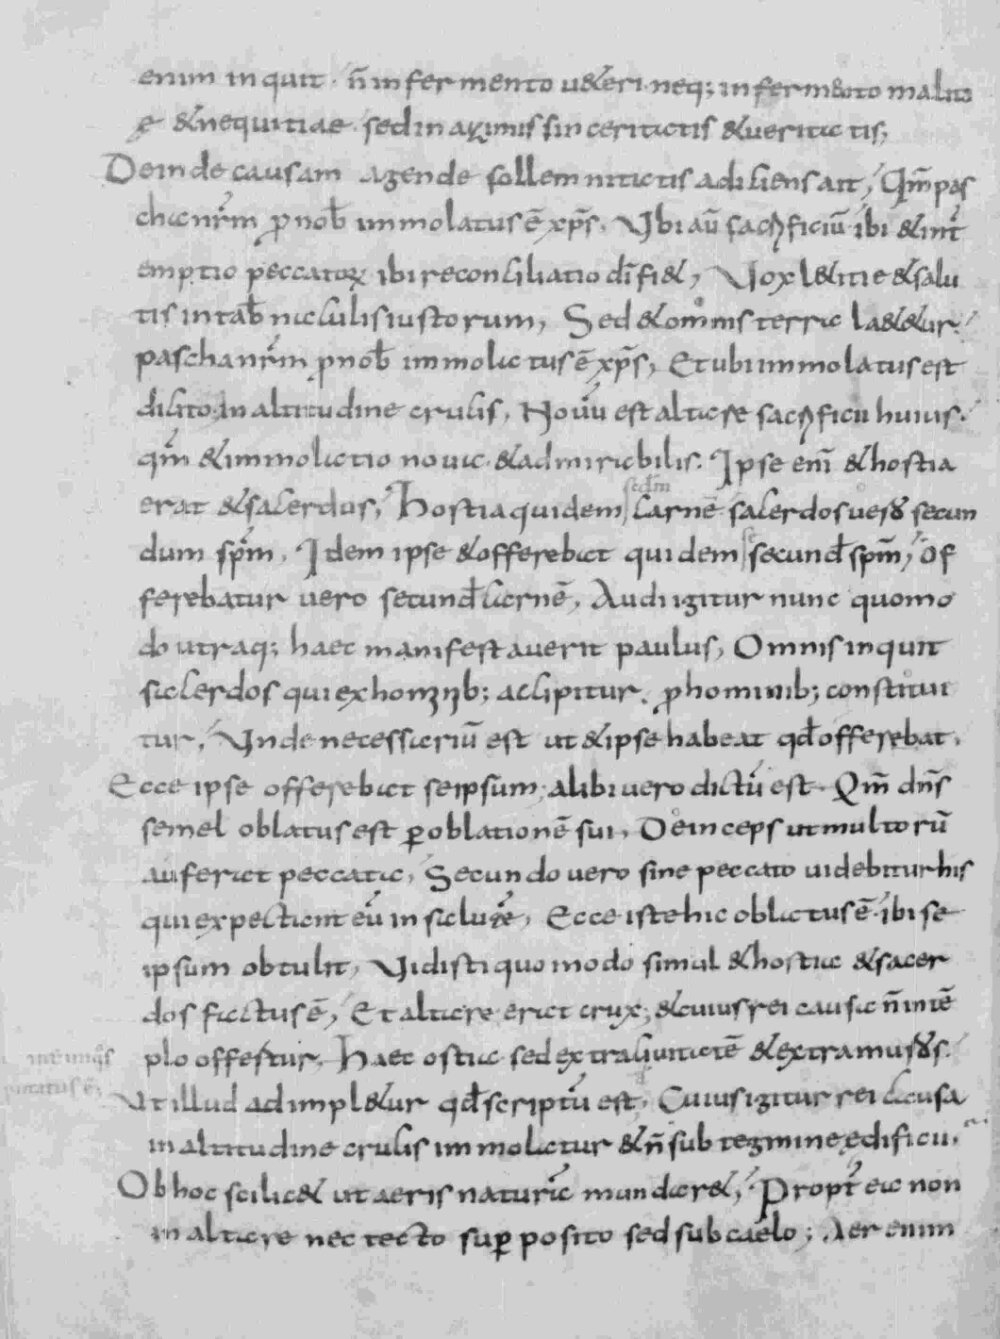 enim inquit · n̄ in fermento ueteri · neq; in fermento malitiȩ
& nequitiae · sed in azimis sinceritatis & ueritatis;
Deinde causam agende sollemnitatis adiciens ait, Qm̄ pas
cha nr̄m p̱ nob̄ immolatus ē xp̄s. Vbi aū sacrificiū ibi & int̄
emptio peccatoꝝ ibi reconciliatio dī fi&, Vox l&itie & salu
tis in tab̄naculis iustorum, Sed & omnis terra la&&ur.
pascha nr̄m p̱ nob̄ immolatus ē xp̄s, Et ubi immolatus est
dicito. In altitudine crucis, Nouū est altare sacrificii huius.
qm̄ & immolatio noua · & admirabilis. Ipse enī & hostia
erat & sacerdus, Hostia quidem secd̄m carnē sacerdos uero secun
dum sp̄m, Idem ipse & offerebat quidem secund̄ sp̄m, Of
ferebatur uero secund̄ carnē, Audi igitur nunc quomo
do utraq; haec manifestauerit paulus, Omnis inquit
sacerdos qui ex hominib; accipitur. p̱ hominib; constitui
tur, Vnde necessariū est ut & ipse habeat qd̄ offerebat.
Ecce ipse offerebat se ipsum; alibi uero dictū est. Qm̄ dn̄s
semel oblatus est ꝑ oblationē sui, Deinceps ut multorū
auferat peccata, Secundo uero sine peccato uidebitur his
qui expectant eū in salutē, Ecce iste hic oblatus ē · ibi se
ipsum obtulit, Vidisti quomodo simul & hostia & sacer
dos factus ē, Et altare erat crux; & cuius rei causa n̄ in tē
plo offertur. Haec ostia sed extra ciuitatē & extra muros.
Vt illud adimpl&ur qd̄ scriptū est. Cuius igitur rei causa
in altitudine crucis immolatur & n̄ sub tegmine edificii.
Ob hoc scilic& ut aeris natura mundar&, Propt̄ ea non
in altare nec tecto suꝑ posito sed sub caelo; Aer enim